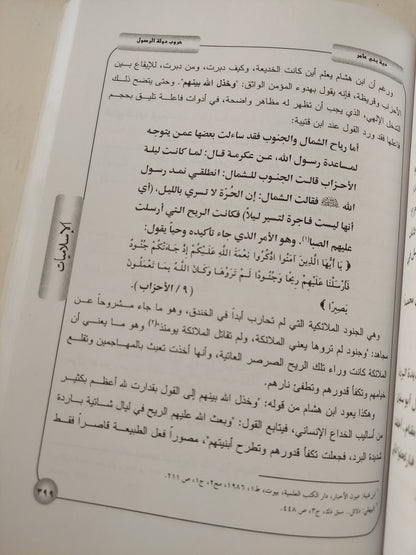 حروب دولة الرسول
دية بني عامر
ورغم أن ابن هشام يعلم أين كانت الخديعة، وكيف دبرت، ومن دبرت، للإيقاع بين
الأحزاب وقريظة، فإنه يقول بهدوء المؤمن الواثق: "وخذل الله بينهم". وحتى يتضح ذلك
التدخل الإلهي، الذي يجب أن تظهر له مظاهر واضحة، في أدوات فاعلة تليق بحجم
فاعلها فقد ورد القول عند ابن قتيبة:
أما رياح الشمال والجنوب فقد ساءلت بعضها عمن يتوجه
لمساعدة رسول الله، عن عكرمة قال: لما كانت ليلة
الأحزاب قالت الجنوب للشمال: انطلقي نمد رسول
الله ﷺ فقالت الشمال: إن الحُرّة لا تسري بالليل، (أي
أنها ليست فاجرة لتسير ليلاً) فكانت الريح التي أرسلت
عليهم الصبا(١). وهو الأمر الذي جاء تأكيده وحياً يقول:
﴿ يَا أَيُّهَا الَّذِينَ آمَنُوا اذْكُرُوا نِعْمَةَ اللَّهِ عَلَيْكُمْ إِذْ جَاءَتْكُمْ جُنُودٌ
فَأَرْسَلْنَا عَلَيْهِمْ رِيحًا وَجُنُودًا لَمْ تَرَوْهَا وَكَانَ اللَّهُ بِمَا تَعْمَلُونَ
بَصِيرًا ﴾
( ٩ / الأحزاب ).
وهي الجنود الملائكية التي لم تحارب أبداً في الخندق، وهو ما جاء مشروحاً عن
مجاهد: "وجنود لم تروها يعني الملائكة، ولم تقاتل الملائكة يومئذ"(٢) وهو ما يعني أن
الملائكة كانت وراء تلك الريح الصرصر العاتية، وأنها أخذت تعبث بالمهاجمين وتقلع
خيامهم وتكفأ قدورهم وتطفئ نارهم.
وهكذا يعود ابن هشام من قوله: "وخذل الله بينهم إلى القول بقدارت لله أعظم بكثير
من أساليب الخداع الإنساني، فيتابع القول: "وبعث الله عليهم الريح في ليال شاتية باردة
شديدة البرد، فجعلت تكفأ قدورهم وتطرح أبنيتهم"، مصوراً فعل الطبيعة قاصراً فقط
ابن قتيبة: عيون الأخبار، دار الكتب العلمية، بيروت، ط١، ١٩٨٦، مج٢، ج١، ص ٢٦١.
البيهقي: دلائل.. سبق ذكره، ج٣، ص ٤٤٨.
٣٩٩
الإسلاميات